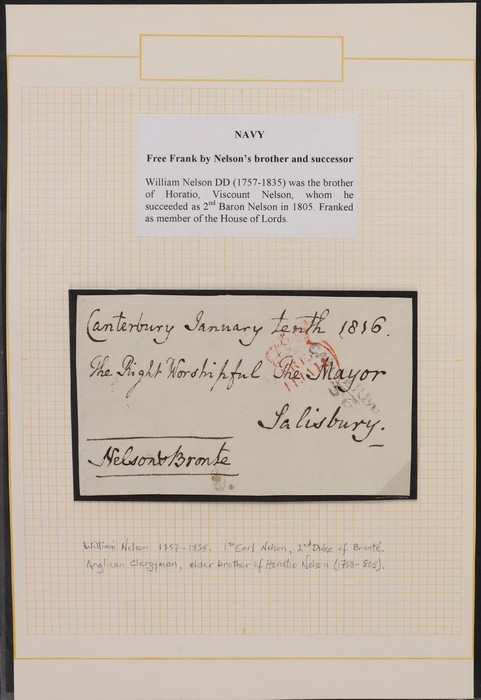 NAVY
Free Frank by Nelson's brother and successor
William Nelson DD (1757-1835) was the brother
of Horatio, Viscount Nelson, whom he
succeeded as 2nd Baron Nelson in 1805. Franked
as member of the House of Lords.
Canterbury January tenth 1816.
The Right Worshipful The Mayor
Salisbury.
Nelson & Bronte
William Nelson 1757-1835. 1st Earl Nelson, 2nd Duke of Bronté.
Anglican Clergyman, elder brother of Horatio Nelson (1758-805).